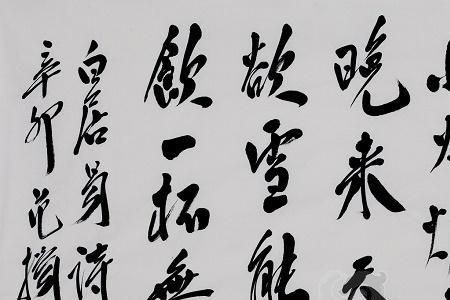 晚来天
欲雪能
飲一杯無
白居易詩
辛卯范